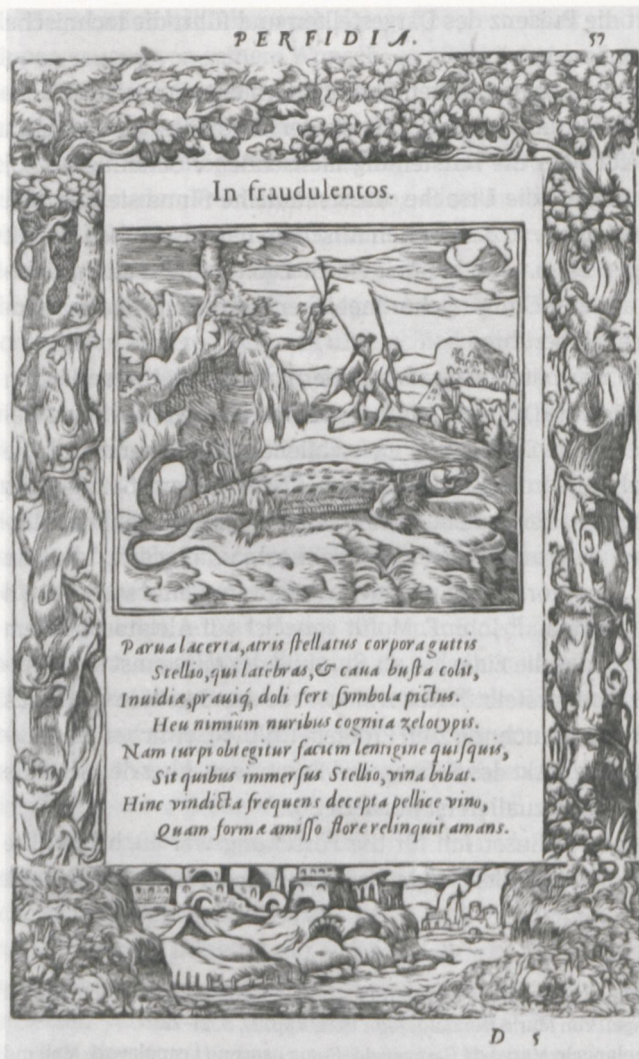 PERFIDIA. 57
In fraudulentos.
Parua lacerta, atris stellatus corpora guttis
Stellio, qui latebras, & caua busta colit,
Inuidiæ, prauiq́; doli fert symbola pictus.
Heu nimiùm nuribus cognita zelotypis.
Nam turpi obtegitur faciem lentigine quisquis,
Sit quibus immersus Stellio, vina bibat.
Hinc vindicta frequens decepta pellice vino,
Quam formæ amisso flore relinquit amans.
D 5